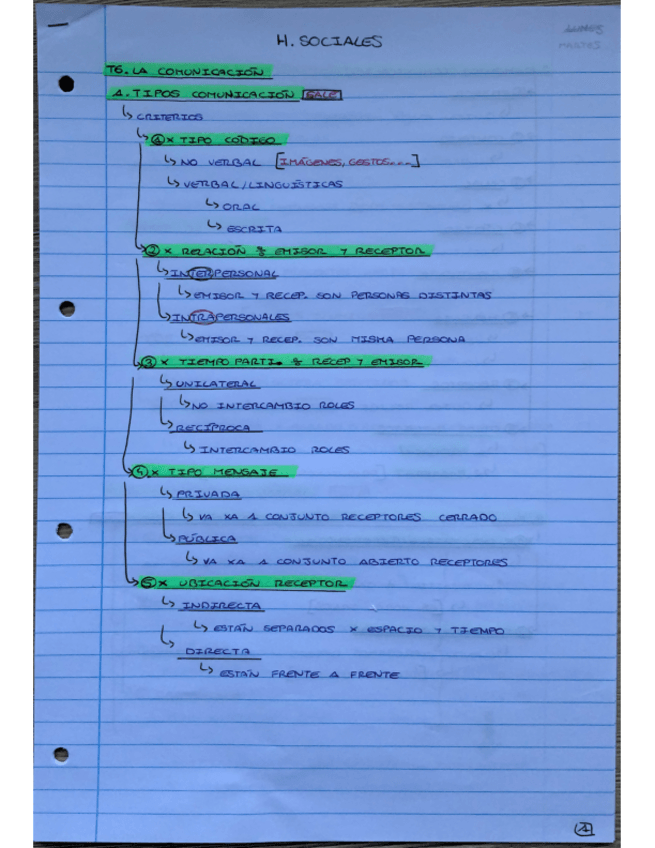 LUNES
MARTES
H. SOCIALES
T6. LA COMUNICACIÓN
1. TIPOS COMUNICACIÓN SALE
↳ CRITERIOS
↳ ① X TIPO CÓDIGO
↳ NO VERBAL [IMÁGENES, GESTOS...]
↳ VERBAL/LINGUÍSTICAS
↳ ORAL
↳ ESCRITA
↳ ② X RELACIÓN % EMISOR Y RECEPTOR
↳ INTERPERSONAL
↳ EMISOR Y RECEP. SON PERSONAS DISTINTAS
↳ INTRAPERSONALES
↳ EMISOR Y RECEP. SON MISMA PERSONA
↳ ③ X TIEMPO PARTI. % RECEP Y EMISOR
↳ UNILATERAL
↳ NO INTERCAMBIO ROLES
↳ RECÍPROCA
↳ INTERCAMBIO ROLES
↳ ④ X TIPO MENSAJE
↳ PRIVADA
↳ VA XA 1 CONJUNTO RECEPTORES CERRADO
↳ PÚBLICA
↳ VA XA 1 CONJUNTO ABIERTO RECEPTORES
↳ ⑤ X UBICACIÓN RECEPTOR
↳ INDIRECTA
↳ ESTÁN SEPARADOS X ESPACIO Y TIEMPO
↳ DIRECTA
↳ ESTÁN FRENTE A FRENTE
1